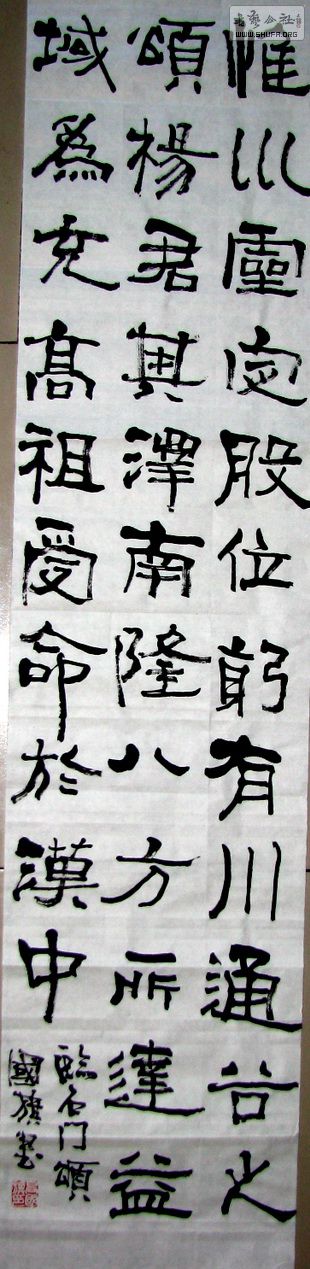 惟巛靈定股位躬有川通谷之
頌楊君其澤南隆八方所達益
域為充高祖受命於漢中
臨石門頌
國旗書
WWW.SHUFA.ORG